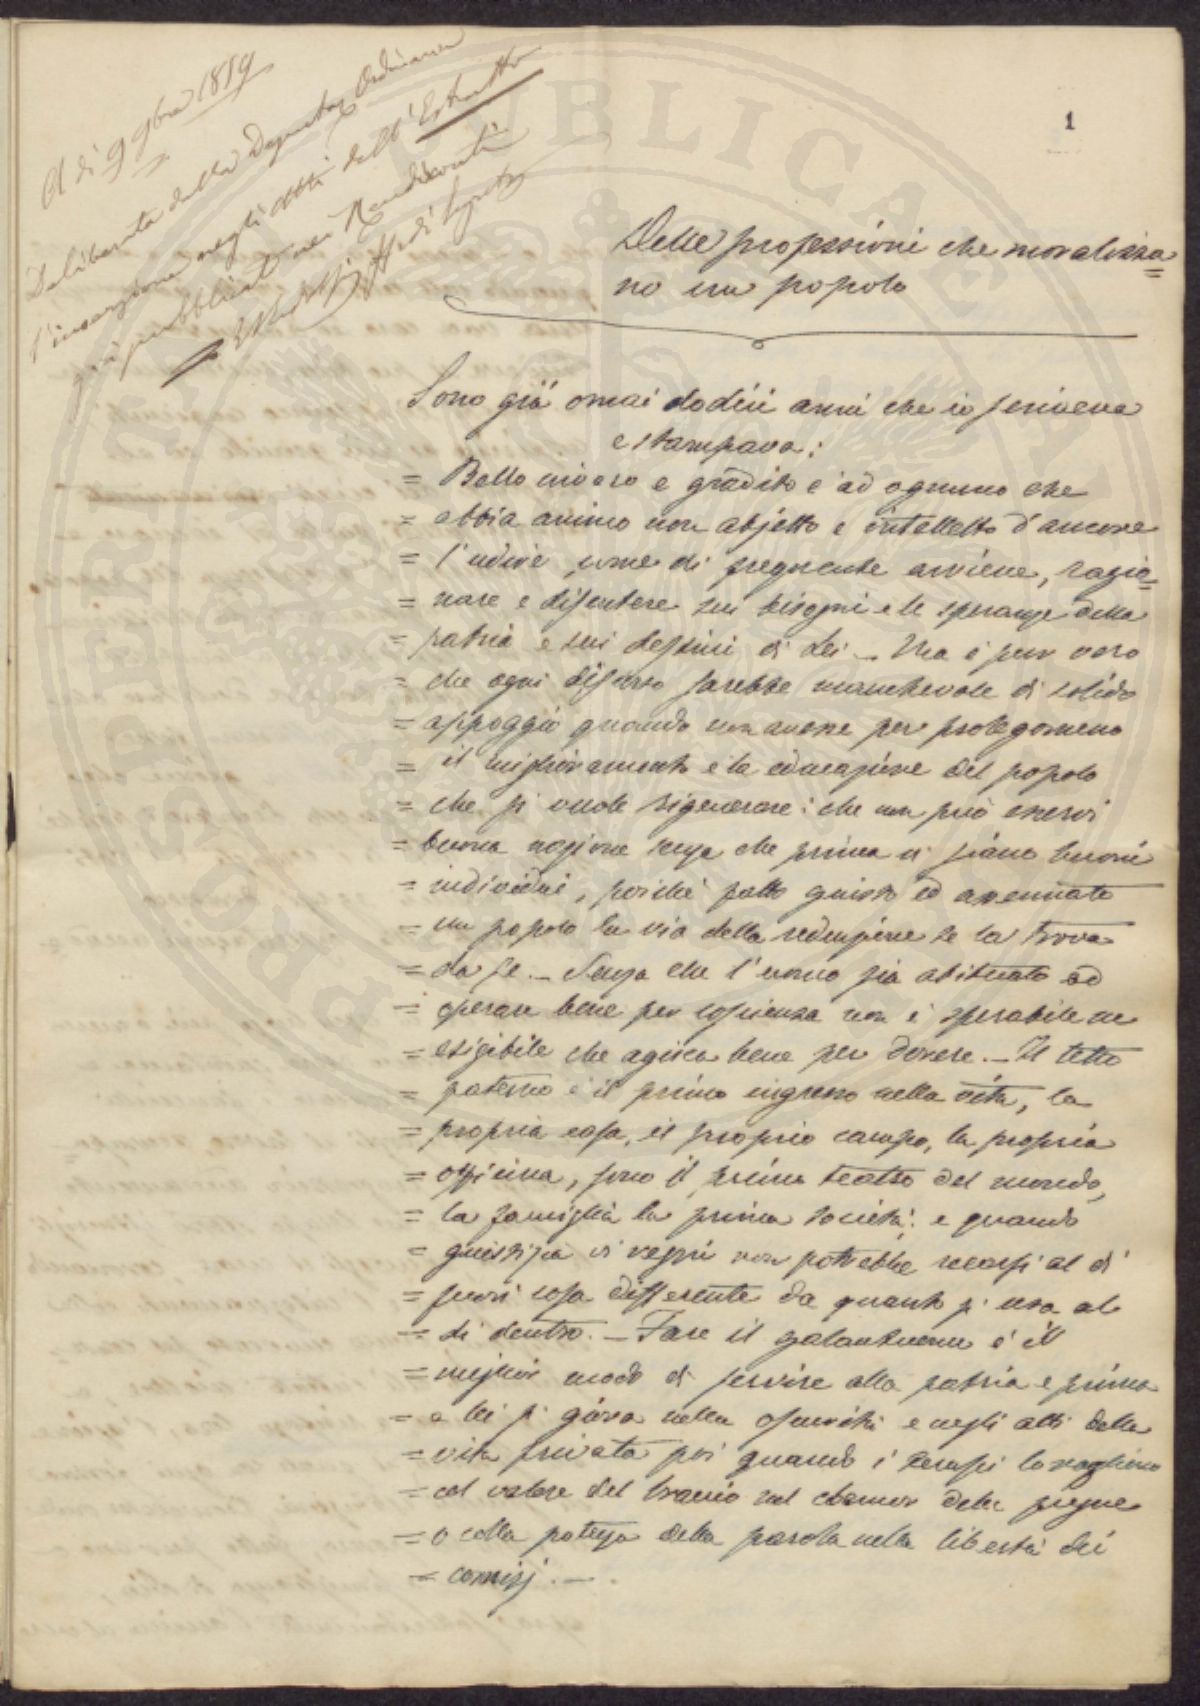 A di 9 9bre 1859
Deliberata dalla Deputaz Ordinaria
l'inserzione negli Atti dell'Estratto
già pubblicato nei Rendiconti
1
Delle professioni che moralizza=
no un popolo
Sono già omai dodici anni che io scriveva
e stampava:
= Bello invero e gradito è ad ognuno che
= abbia animo non abjetto e intelletto d'amore
= l'udire, come di frequente avviene, ragio=
= nare e discutere sui bisogni e le speranze della
= patria e sui destini di Lei – Ma è pur vero
= che ogni discorso sarebbe manchevole di solido
= appoggio quando non avesse per prolegomeno
= il miglioramento e la educazione del popolo
= che si vuole rigenerare: che non può esservi
= buona nazione senza che prima vi siano buoni
= individui, poichè fatto giusto ed assennato
= un popolo la via della redenzione se la trova
= da se. – Senza che l'uomo sia abituato ad
= operare bene per coscienza non è sperabile ne
= esigibile che agisca bene per dovere. – Il tetto
= paterno è il primo ingresso nella vita, la
= propria casa, il proprio campo, la propria
= officina, sono il primo teatro del mondo,
= la famiglia la prima società; e quando
= giustizia vi regni non potrebbe recarsi al di
= fuori cosa differente da quanto si usa al
= di dentro. – Fare il galantuomo è il
= miglior modo di servire alla patria e prima
= a lei si giova nella oscurità e negli atti della
= vita privata poi quando i tempi lo vogliono
= col valore del braccio nel clamor delle pugne
= o colla potenza della parola nella libertà dei
= comizj. –